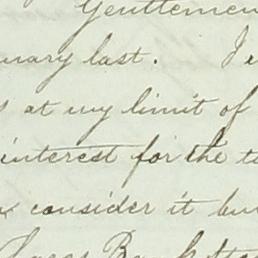 Gentlemen
uary last. I
at my limit of
interest for the t
consider it bu